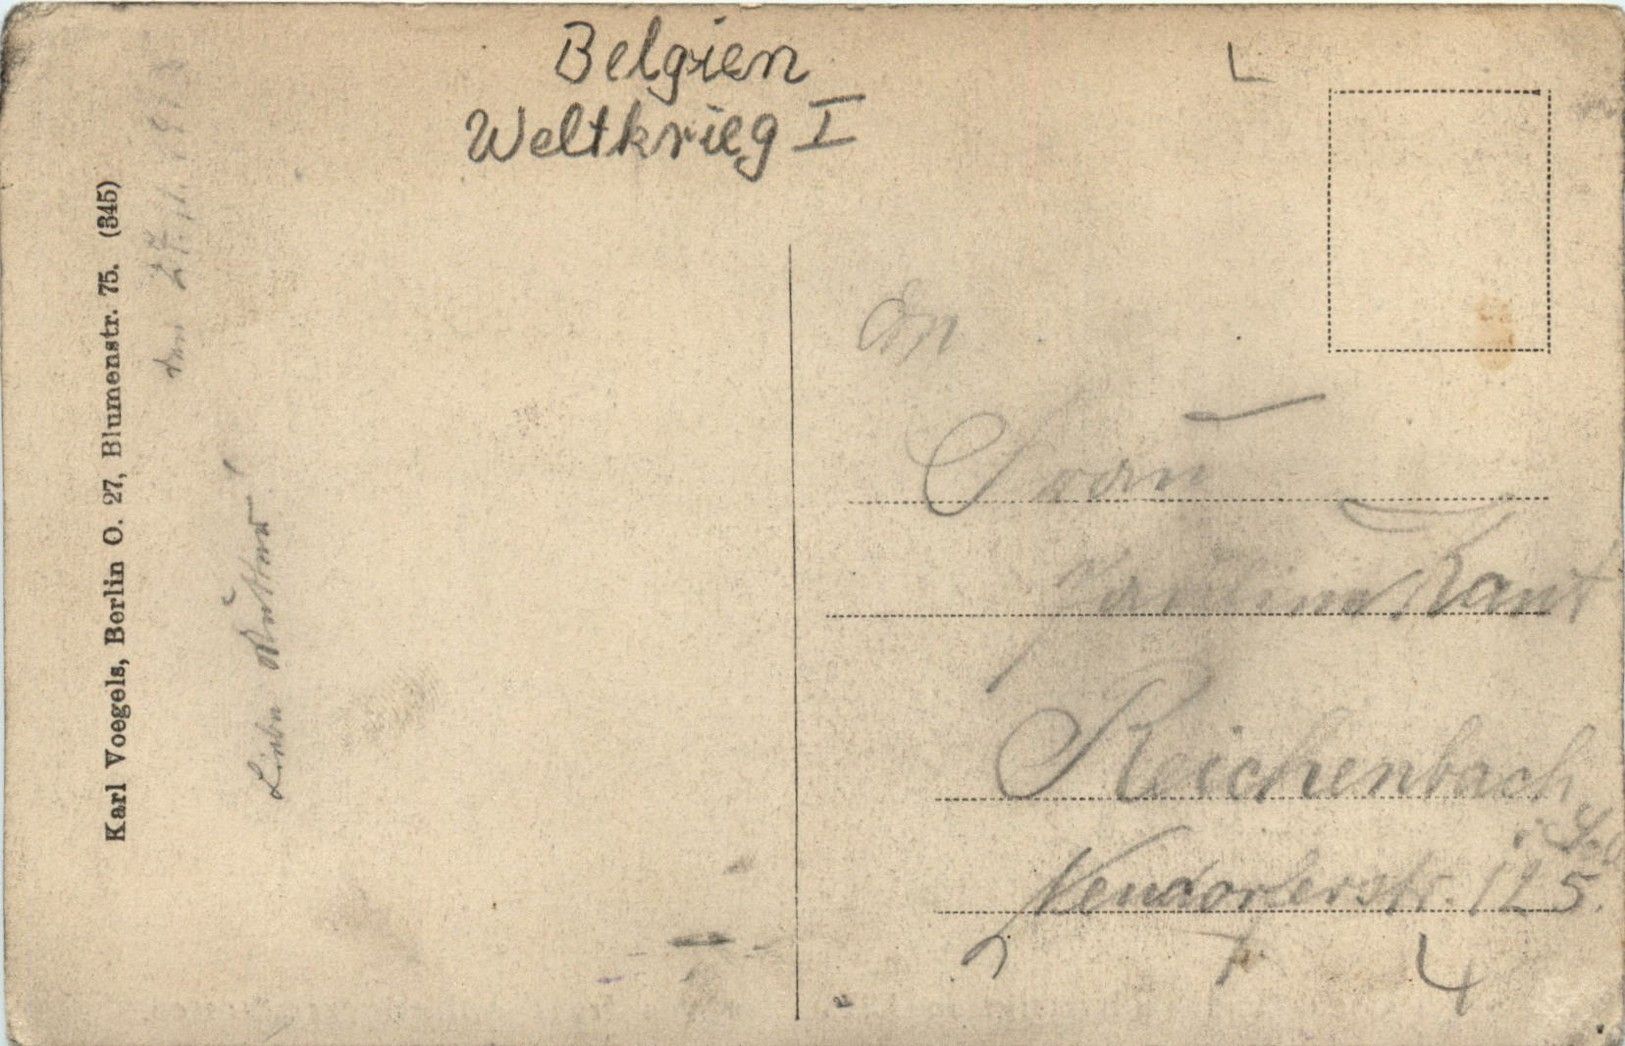 Belgien
Weltkrieg I
L
Karl Voegels, Berlin O. 27, Blumenstr. 75. (345)
den 27.11.
Liebe Mutter!
An
Frau
Pauline Kant
Reichenbach
i.
Neudorferstr. 125.
4